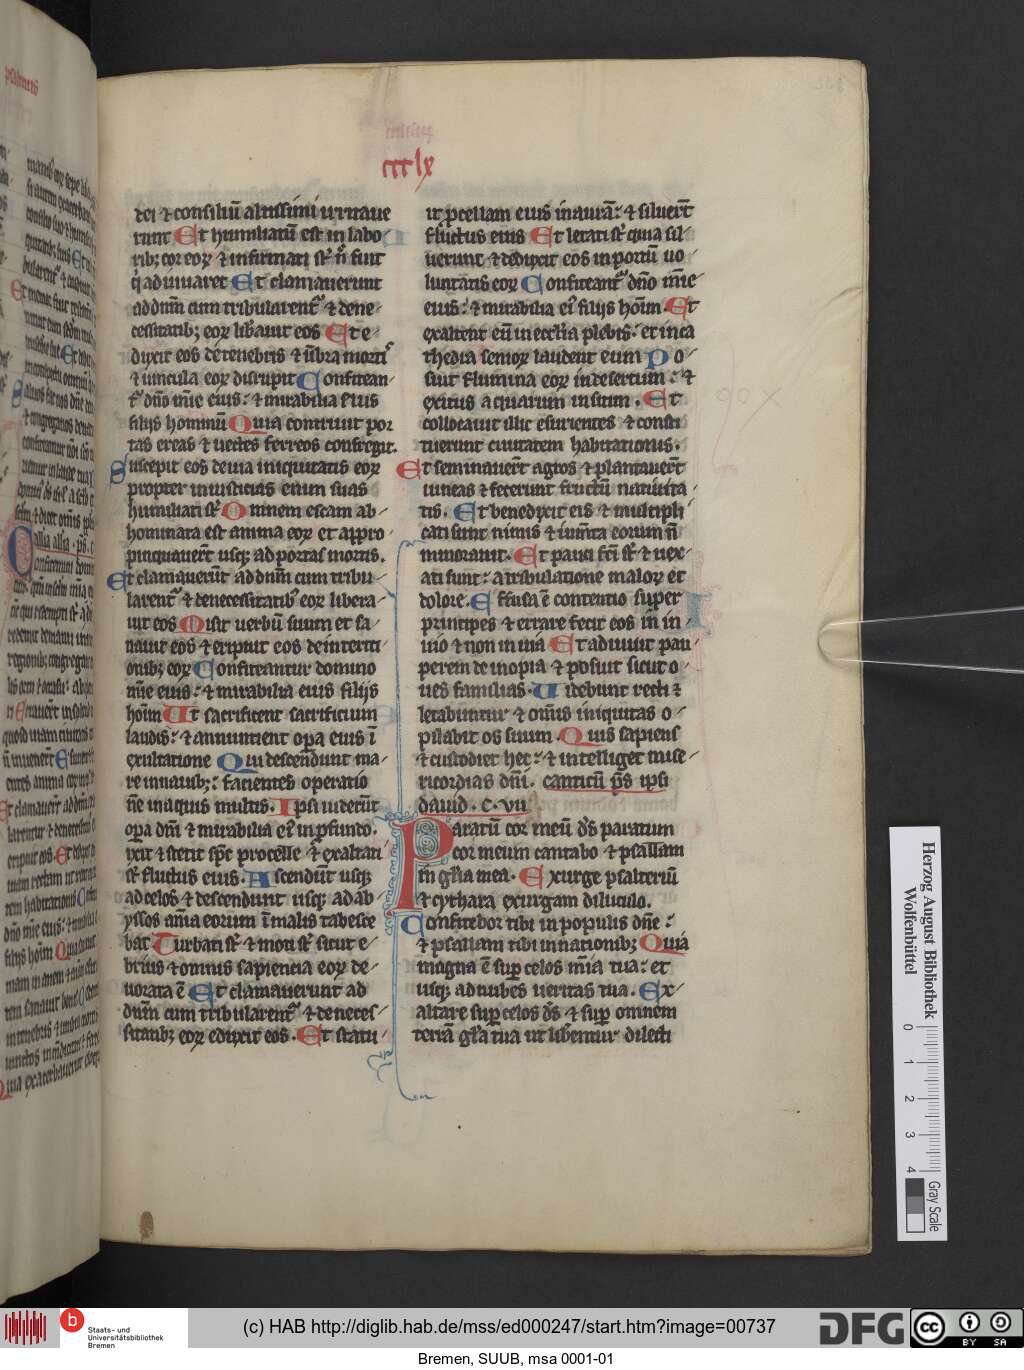 ccclx
dei ⁊ consiliū altissimi irritaue
runt Et humiliatū est in labo
rib; cor eoꝝ ⁊ infirmati sͭ n̄ fuit
q̇ adiuuaret Et clamauerunt
ad dnm̄ cum tribularentᷣ ⁊ de ne
cessitatib; eoꝝ lib̓auit eos Et e
duxit eos de tenebris ⁊ ūbra mortiˢ
⁊ uincula eoꝝ disrupit Confitean
tᷣ dn̄o mīe eius: ⁊ mirabilia eius
filijs hominū Quia contriuit por
tas ereas ⁊ uectes ferreos confregit.
Suscepit eos de uia iniquitatis eoꝝ
propter iniusticias enim suas
humiliati sͭ Omnem escam ab
hominata est anima eoꝝ et appro
pinquauer̄t usq; ad portas mortis.
Et clamauerūt ad dnm̄ cum tribu
larentᷣ ⁊ de necessitatib; eoꝝ libera
uit eos Misit uerbū suum et sa
nauit eos ⁊ eripuit eos de interiti
onib; eoꝝ Confiteantur domino
mīe eius: ⁊ mirabilia eius filijs
hoīm Ut sacrificent sacrificium
laudis: ⁊ annuntient opa eius ī
exultatione Qui descendunt ma
re in nauib;: facientes operatio
n̄e in aquis multis. Ipsi uiderūt
opa dm̄i ⁊ mirabilia eiꝰ in pfundo.
ixit ⁊ stetit sp̄c procelle ⁊ exaltati
sͭ fluctus eius. Ascendūt usq;
ad celos ⁊ descendunt usq; ad ab
yssos an̄ia eorum ī malis tabesce
bat Turbati sͭ ⁊ moti sͭ sicut e
brius ⁊ omnis sapiencia eoꝝ de
uorata ē Et clamauerunt ad
dnm̄ cum tribularentᷣ ⁊ de neces
sitatib; eoꝝ eduxit eos. Et statu
it pcellam eius in aurā: ⁊ siluer̄t
fluctus eius Et letati sͭ quia sil
uerunt ⁊ deduxit eos in portū uo
luntatis eoꝝ Confiteantᷣ dn̄o mīe
eius: ⁊ mirabilia eiꝰ filijs hoīm. Et
exaltent eū in ecclīa plebis: et in ca
thedra senioꝝ laudent eum Po
suit flumina eoꝝ in desertum: ⁊
exitus aquarum in sitim. Et
collocauit illic esurientes ⁊ consti
tuerunt ciuitatem habitationis.
Et seminauer̄t agros ⁊ plantauer̄t
uineas ⁊ fecerunt fructū natiuita
tis. Et benedixit eis ⁊ multipli
cati sunt nimis ⁊ ium̄ta eorum n̄
minorauit. Et pauci fc̄i sͭ ⁊ uex
ati sunt: a tribulatione maloꝝ et
dolore. Effusa ē contentio super
principes ⁊ errare fecit eos in in
uio ⁊ non in uia Et adiuuit pau
perem de inopia ⁊ posuit sicut o
ues familias. Uidebunt recti ⁊
letabuntur ⁊ om̄is iniquitas o
pilabit os suum. Quis sapiens
⁊ custodiet hec: ⁊ intelliget mise
ricordias dn̄i. canticū ps̄ ipsi
dauid. C.vii
Paratū cor meū ds̄ paratum
cor meum cantabo ⁊ psallam
in gl̄ia mea. Exurge psalteriū
⁊ cythara exurgam diluculo.
Confitebor tibi in populis dn̄e:
⁊ psallam tibi in nationib; Quia
magna ē sup celos mīa tua: et
usq; ad nubes ueritas tua. Ex
altare sup celos ds̄ ⁊ sup omnem
terrā gl̄a tua ut lib̓entur dilecti
Herzog August Bibliothek
Wolfenbüttel
0 1 2 3 4
Gray Scale
b
Staats- und
Universitätsbibliothek
Bremen
(c) HAB http://diglib.hab.de/mss/ed000247/start.htm?image=00737
DFG
cc
BY SA
Bremen, SUUB, msa 0001-01